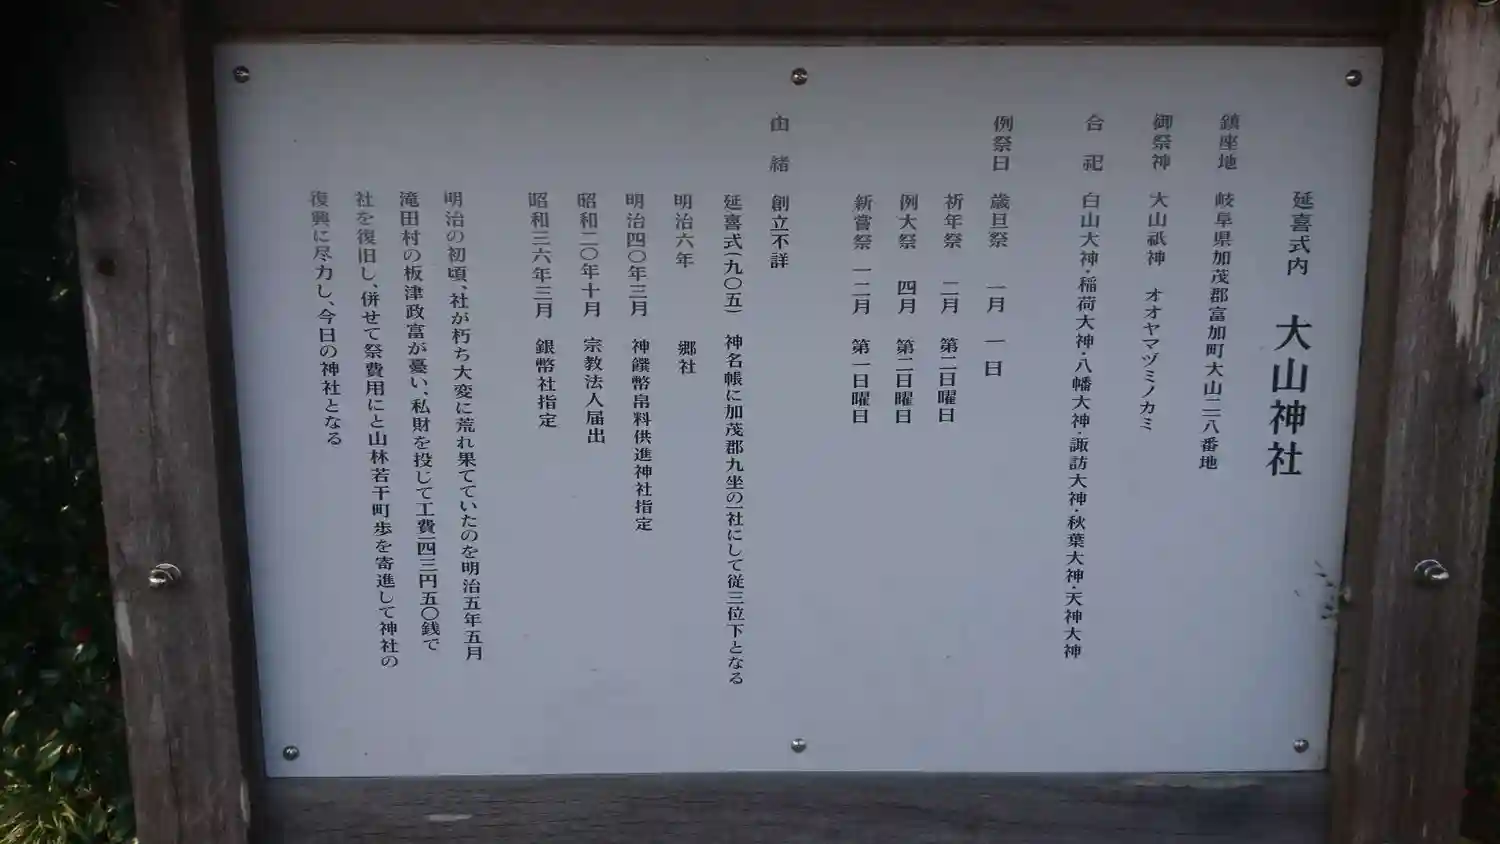 延喜式内 大山神社
鎮座地 岐阜県加茂郡富加町大山二八番地
御祭神 大山祇神 オオヤマヅミノカミ
合祀 白山大神・稲荷大神・八幡大神・諏訪大神・秋葉大神・天神大神
例祭日 歳旦祭 一月 一日
祈年祭 二月 第二日曜日
例大祭 四月 第二日曜日
新嘗祭 一二月 第一日曜日
由緒 創立不詳
延喜式(九〇五) 神名帳に加茂郡九坐の一社にして従三位下となる
明治六年 郷社
明治四〇年三月 神饌幣帛料供進神社指定
昭和二〇年十月 宗教法人届出
昭和三六年三月 銀幣社指定
明治の初頃、社が朽ち大変に荒れ果てていたのを明治五年五月
滝田村の板津政富が憂い、私財を投じて工費一四三円五〇銭で
社を復旧し、併せて祭費用にと山林若干町歩を寄進して神社の
復興に尽力し、今日の神社となる